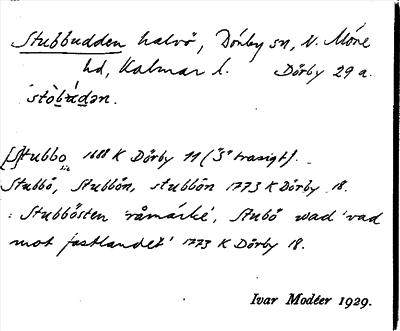 Stubbudden halvö, Dörby sn, N. Möre
hd, Kalmar l. Dörby 29 a.
[S]tubbo 1688 K Dörby 11 ("S" trasigt).
Stubbö, Stubbön, stubbön 1773 K Dörby 18.
: Stubbösten 'råmärke', Stubö wad 'vad
mot fastlandet' 1773 K Dörby 18.
Ivar Modéer 1929.